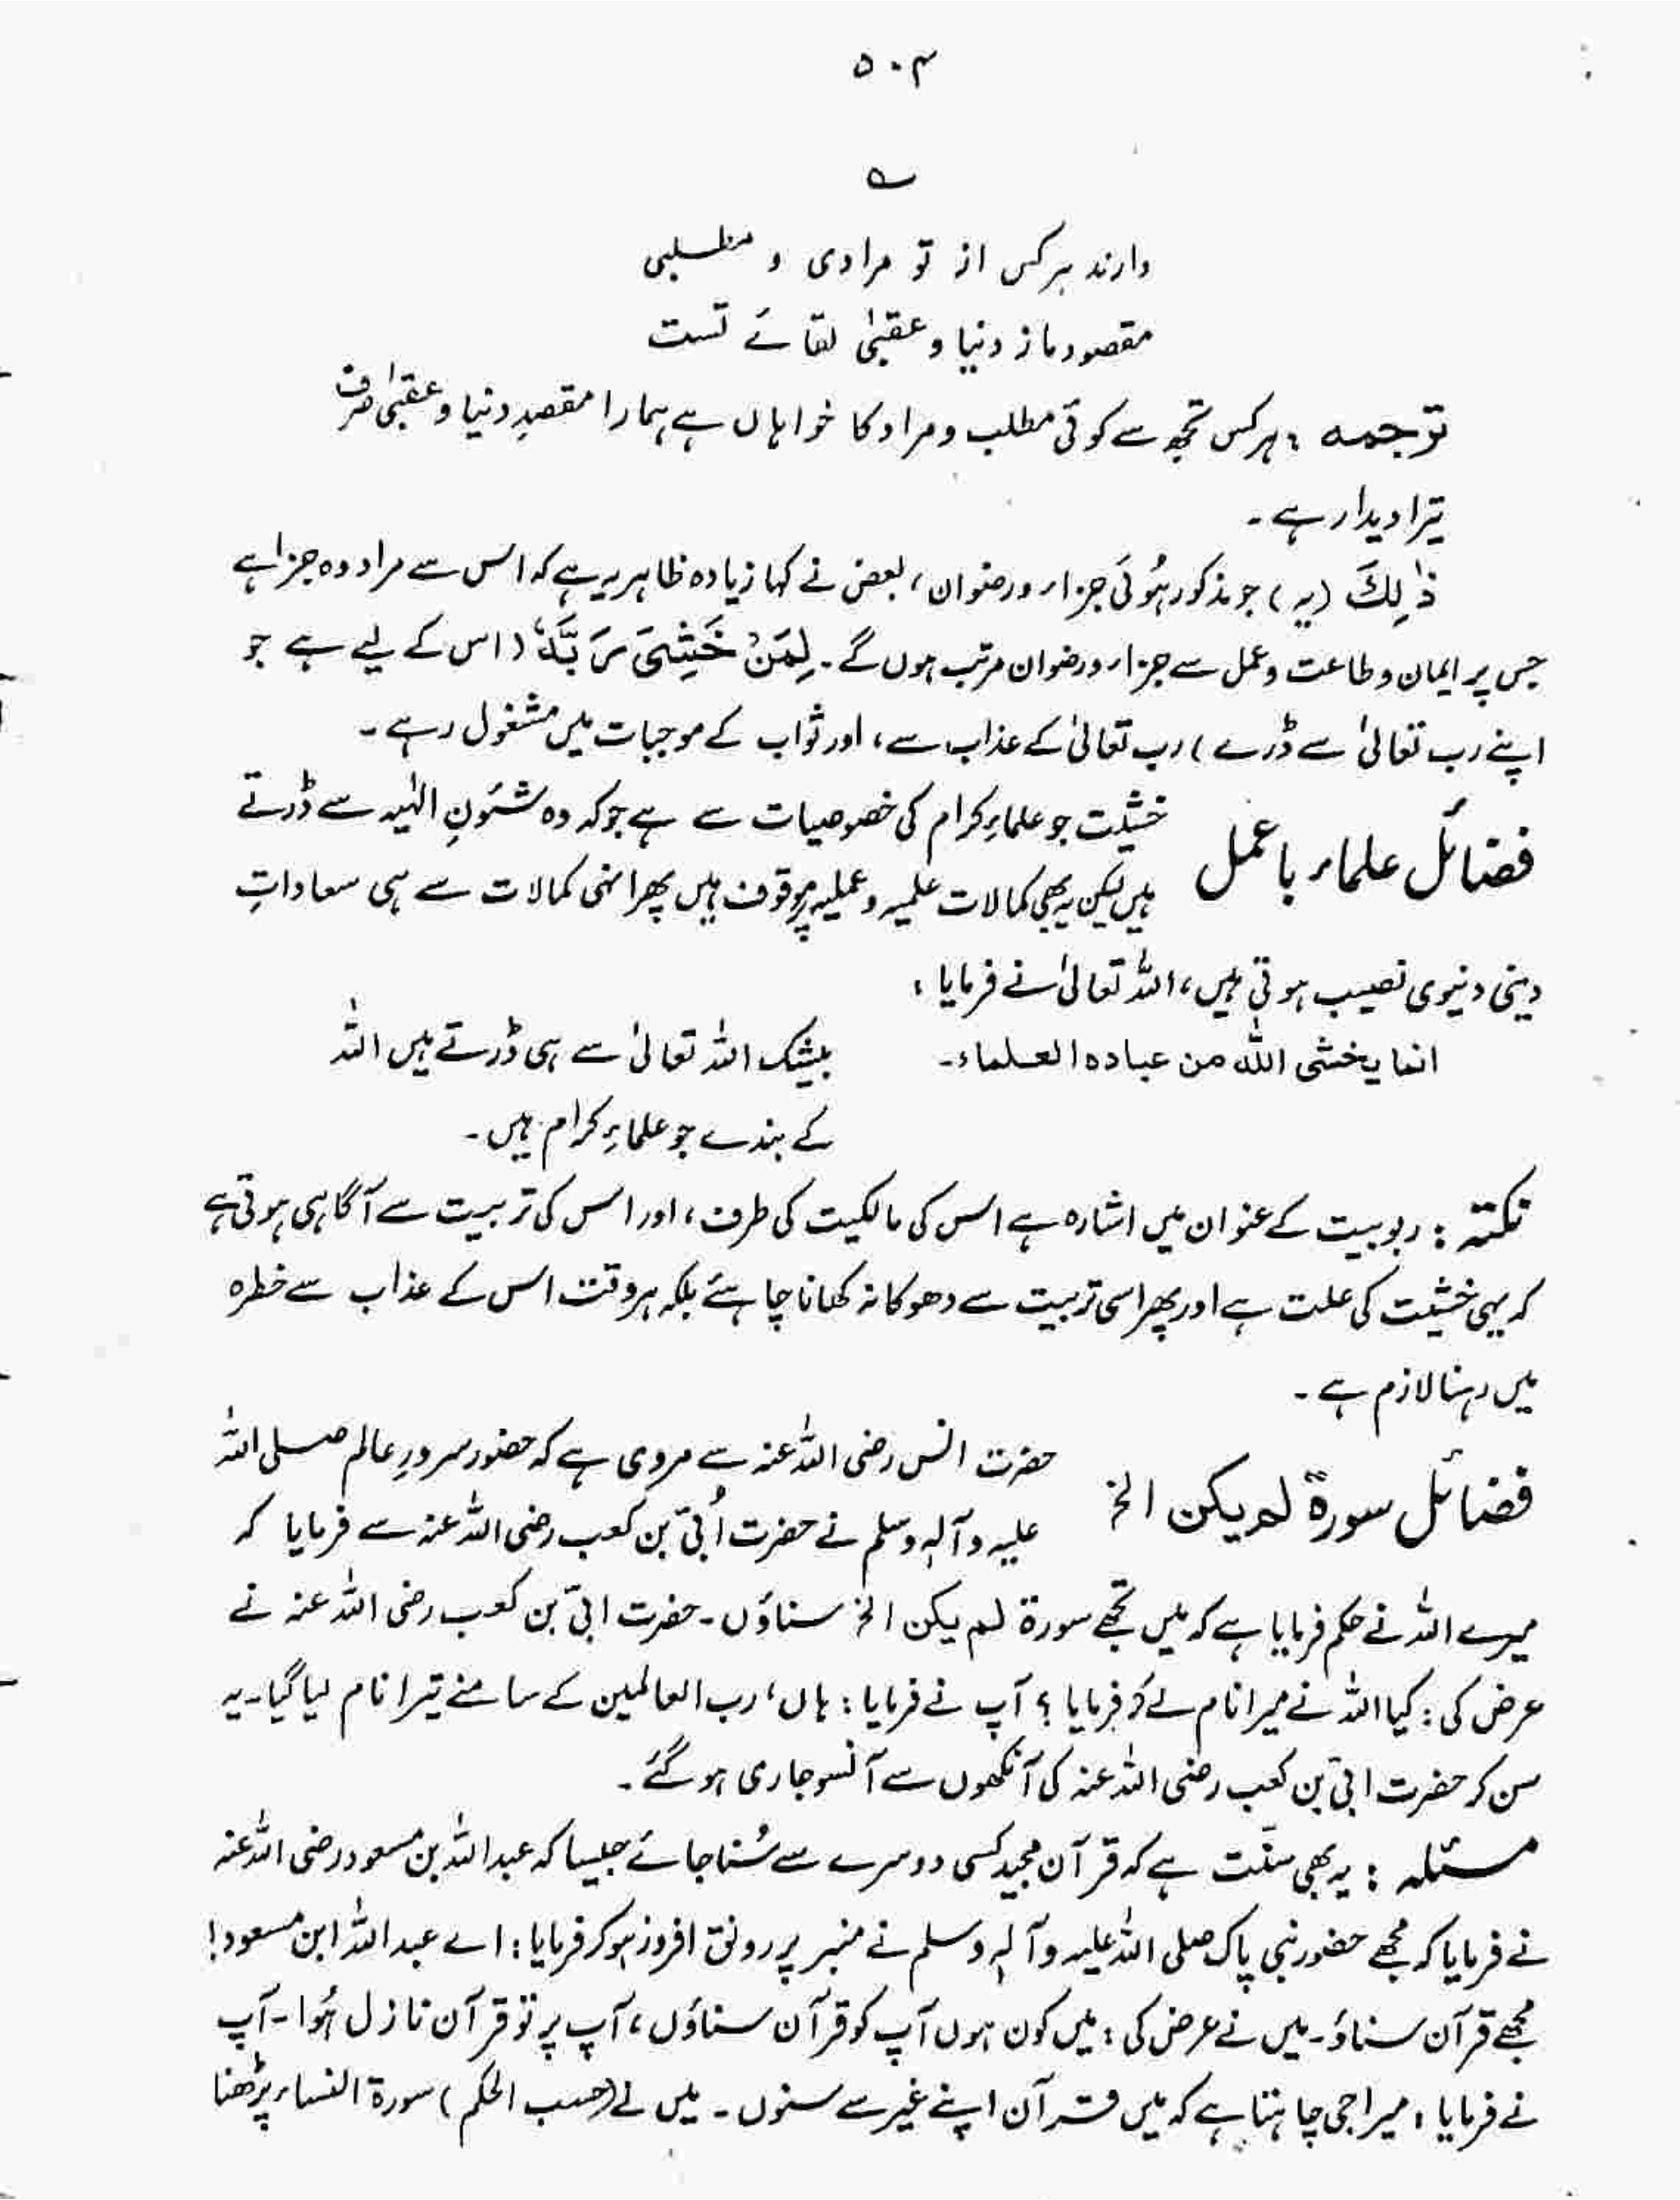 ۵۰۴
؎
دارند ہر کس از تو مرادی و مطلبی
مقصود ما ز دنیا و عقبیٰ لقائے تست
ترجمہ : ہر کس تجھ سے کوئی مطلب و مراد کا خواہاں ہے ہمارا مقصدِ دنیا و عقبیٰ صرف
تیرا دیدار ہے ۔
ذٰلِكَ (یہ) جو مذکور ہُوئی جزاء و رضوان ، بعض نے کہا زیادہ ظاہر یہ ہے کہ اس سے مراد وہ جزا ہے
جس پر ایمان و طاعت و عمل سے جزاء و رضوان مرتب ہوں گے ۔ لِمَنْ خَشِيَ رَبَّهٗ (اس کے لیے ہے جو
اپنے رب تعالیٰ سے ڈرے) رب تعالیٰ کے عذاب سے ، اور ثواب کے موجبات میں مشغول رہے ۔
فضائل علماء باعمل
خشیت جو علماءِ کرام کی خصوصیات سے ہے جو کہ وہ شئونِ الٰہیہ سے ڈرتے
ہیں لیکن یہ بھی کمالات علمیہ و عملیہ پر موقوف ہیں پھر انہی کمالات سے ہی سعاداتِ
دینی دنیوی نصیب ہوتی ہیں ، اللہ تعالیٰ نے فرمایا :
انما یخشی اللہ من عبادہ العلماء ۔
بیشک اللہ تعالیٰ سے ہی ڈرتے ہیں اللہ
کے بندے جو علماءِ کرام ہیں ۔
نکتہ : ربوبیت کے عنوان میں اشارہ ہے اس کی مالکیت کی طرف ، اور اس کی تربیت سے آگاہی ہوتی ہے
کہ یہی خشیت کی علت ہے اور پھر اسی تربیت سے دھوکا نہ کھانا چاہئے بلکہ ہر وقت اس کے عذاب سے خطرہ
میں رہنا لازم ہے ۔
فضائل سورة لم یکن الخ
حضرت انس رضی اللہ عنہ سے مروی ہے کہ حضور سرورِ عالم صلی اللہ
علیہ و آلہٖ وسلم نے حضرت اُبَیّ بن کعب رضی اللہ عنہ سے فرمایا کہ
میرے اللہ نے حکم فرمایا ہے کہ میں تجھے سورة لم یکن الخ سناؤں ۔ حضرت ابیّ بن کعب رضی اللہ عنہ نے
عرض کی : کیا اللہ نے میرا نام لے کر فرمایا ؟ آپ نے فرمایا : ہاں ، رب العالمین کے سامنے تیرا نام لیا گیا ۔ یہ
سن کر حضرت ابیّ بن کعب رضی اللہ عنہ کی آنکھوں سے آنسو جاری ہو گئے ۔
مسئلہ : یہ بھی سنّت ہے کہ قرآن مجید کسی دوسرے سے سُنا جائے جیسا کہ عبداللہ بن مسعود رضی اللہ عنہ
نے فرمایا کہ مجھے حضور نبی پاک صلی اللہ علیہ و آلہٖ وسلم نے منبر پر رونق افروز ہو کر فرمایا : اے عبداللہ ابن مسعود !
مجھے قرآن سناؤ ۔ میں نے عرض کی : میں کون ہوں آپ کو قرآن سناؤں ، آپ پر تو قرآن نازل ہُوا ۔ آپ
نے فرمایا : میرا جی چاہتا ہے کہ میں قرآن اپنے غیر سے سنوں ۔ میں نے (حسب الحکم) سورة النساء پڑھنا